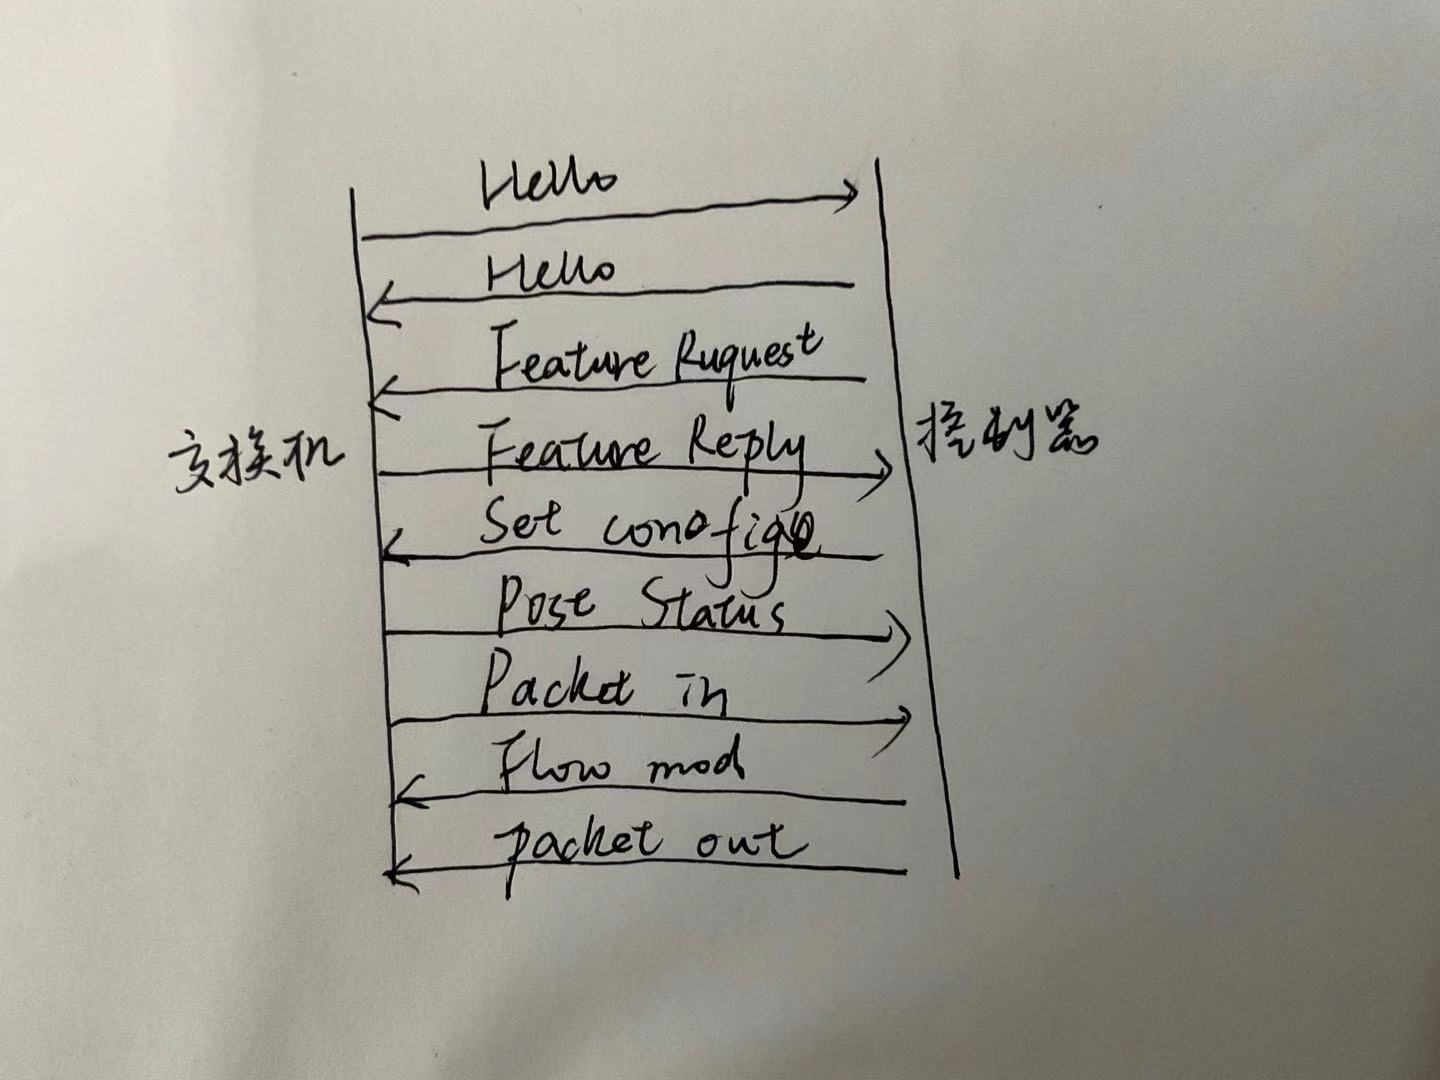 Hello
Hello
Feature Ruquest
交换机
Feature Reply
控制器
Set conofig
Pose Status
Packet in
Flow mod
packet out